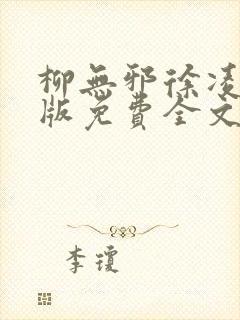 柳無邪徐凌
版免費全文
李瓊